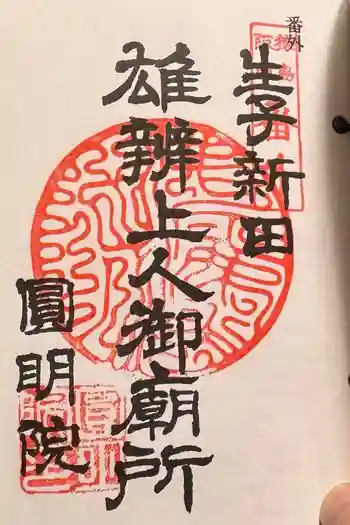 番外
生子新田
雄辨上人御廟所
圓明院